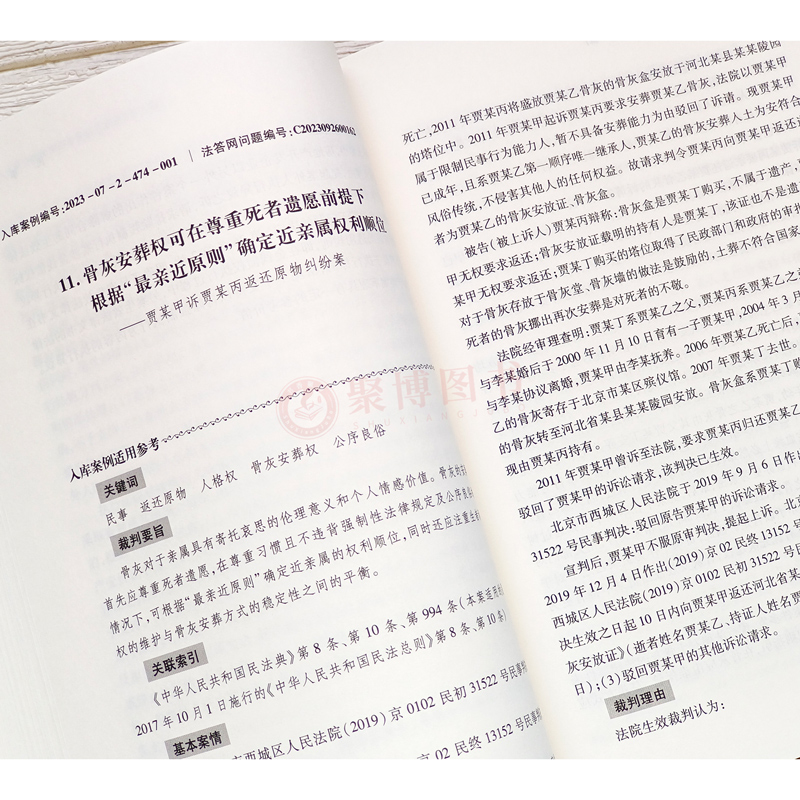 入库案例编号:2023-07-2-474-001 | 法答网问题编号:C2023092600162
11.骨灰安葬权可在尊重死者遗愿前提下
根据“最亲近原则”确定近亲属权利顺位
——贾某甲诉贾某丙返还原物纠纷案
入库案例适用参考
关键词
民事 返还原物 人格权 骨灰安葬权 公序良俗
裁判要旨
骨灰对于亲属具有寄托哀思的伦理意义和个人情感价值。骨灰的
首先应尊重死者遗愿,在尊重习惯且不违背强制性法律规定及公序良
情况下,可根据“最亲近原则”确定近亲属的权利顺位,同时还应注重
权的维护与骨灰安葬方式的稳定性之间的平衡。
关联索引
《中华人民共和国民法典》第8条、第10条、第994条(本案适用的
2017年10月1日施行的《中华人民共和国民法总则》第8条、第10条)
市西城区人民法院(2019)京0102民初31522号民事判
基本案情
02民终13152号民事
死亡,2011年贾某丙将盛放贾某乙骨灰的骨灰盒安放于河北某县某某陵园
的塔位中。2011年贾某甲起诉贾某丙要求安葬贾某乙骨灰,法院以贾某甲
属于限制民事行为能力人,暂不具备安葬能力为由驳回了诉请。现贾某甲
已成年,且系贾某乙第一顺序唯一继承人,贾某乙的骨灰安葬入土为安符合
风俗传统,不侵害其他人的任何权益。故请求判令贾某丙向贾某甲返还
者为贾某乙的骨灰安放证、骨灰盒。
被告(被上诉人)贾某丙辩称:骨灰盒是贾某丁购买,不属于遗产,
甲无权要求返还;骨灰安放证载明的持有人是贾某丁,该证也不是遗
某甲无权要求返还;贾某丁购买的塔位取得了民政部门和政府的审批
对于骨灰存放于骨灰堂、骨灰墙的做法是鼓励的,土葬不符合国家
死者的骨灰挪出再次安葬是对死者的不敬。
法院经审理查明:贾某丁系贾某乙之父,贾某丙系贾某乙之
与李某婚后于2000年11月10日育有一子贾某甲,2004年3月
与李某协议离婚,贾某甲由李某抚养。2006年贾某乙死亡后,
乙的骨灰寄存于北京市某区殡仪馆。2007年贾某丁去世。
的骨灰转至河北省某县某某陵园安放。骨灰盒系贾某丁购
现由贾某丙持有。
2011年贾某甲曾诉至法院,要求贾某丙归还贾某乙
驳回了贾某甲的诉讼请求,该判决已生效。
北京市西城区人民法院于2019年9月6日作
31522号民事判决:驳回原告贾某甲的诉讼请求。
宣判后,贾某甲不服原审判决,提起上诉。北
2019年12月4日作出(2019)京02民终13152
西城区人民法院(2019)京0102民初31522号
决生效之日起10日内向贾某甲返还河北省某
灰安放证》(逝者姓名贾某乙,持证人姓名贾
日);(3)驳回贾某甲的其他诉讼请求。
裁判理由
法院生效裁判认为:
聚博图书